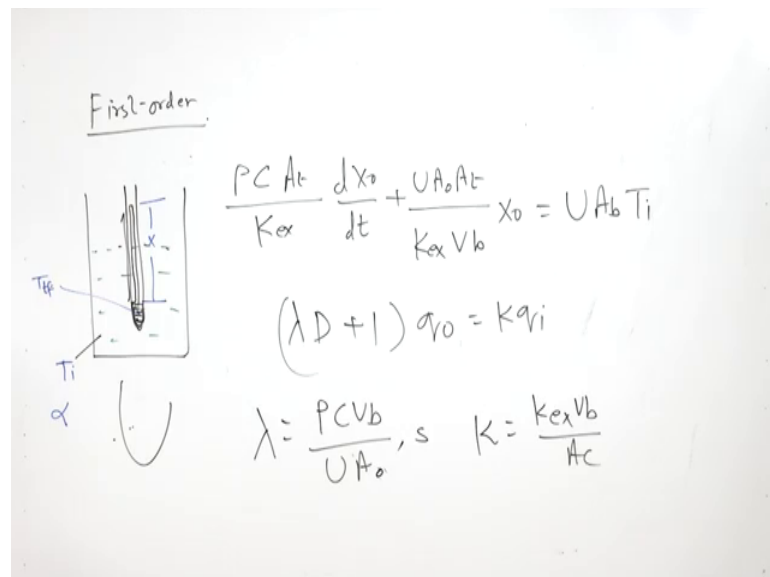 First-order
PCAt/Kex dx₀/dt + UA₀At/KexVb x₀ = UAb Ti
x
Ttf
(λD + 1) q₀ = Kqi
Ti
α
λ = PCVb/UA₀, s K = KexVb/Ac